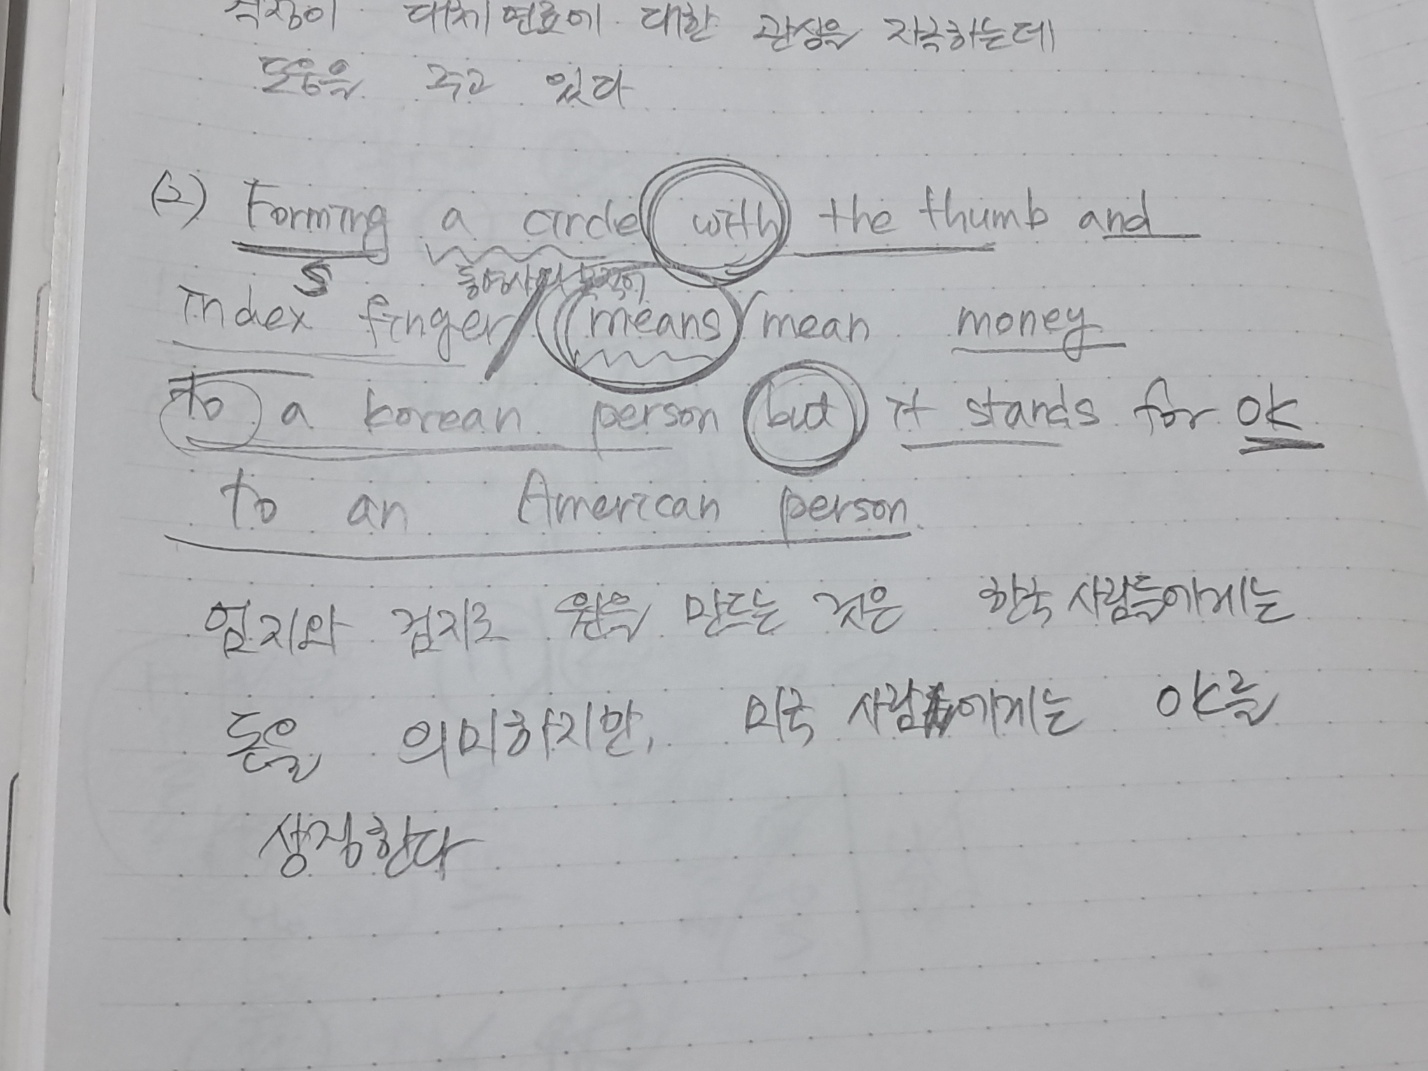 대체 연료에 대한 관심을 자극하는데
도움을 주고 있다
(2) Forming a circle with the thumb and
S
동명사의 목적어
index finger / (means / mean money
to a korean person but it stands for ok
to an American person.
엄지와 검지로 원을 만드는 것은 한국 사람들에게는
돈을 의미하지만, 미국 사람에게는 ok를
상징한다